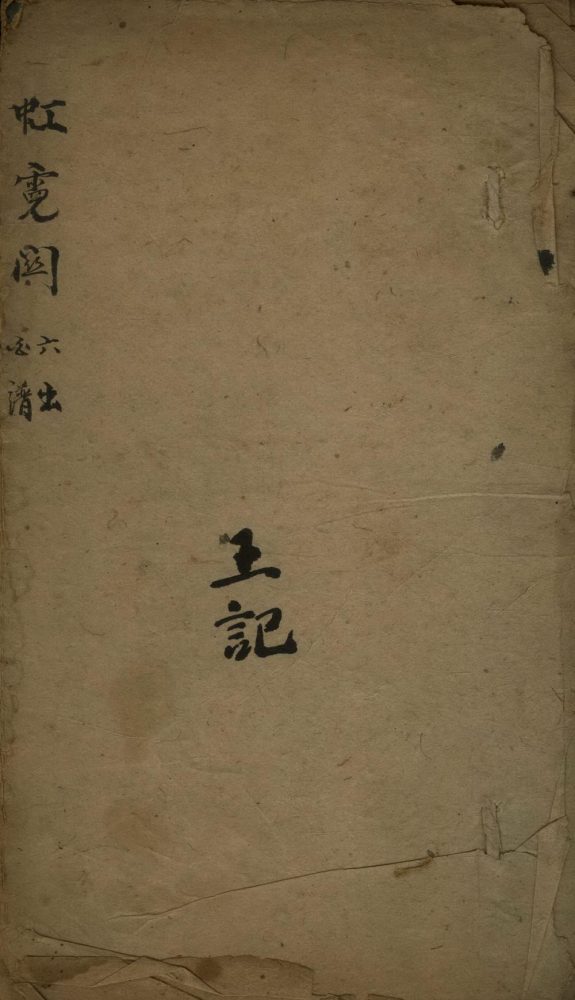 虹霓關
六出
全譜
王記